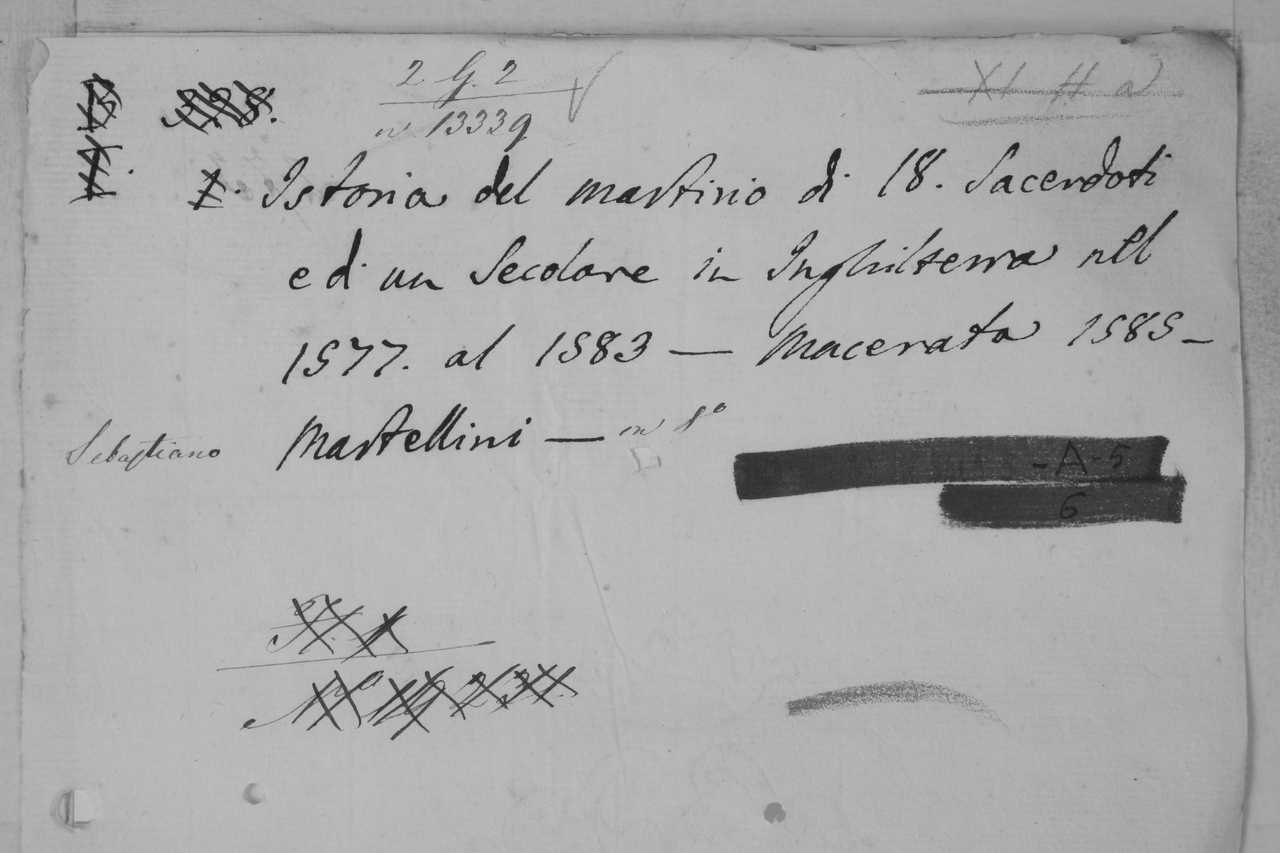 2 G. 2
n 13339
XI H a
Istoria del martirio di 18. Sacerdoti
e di un Secolare in Inghilterra nel
1577. al 1583 — Macerata 1585 —
Sebastiano Martellini — in 8°
- A - 5
6